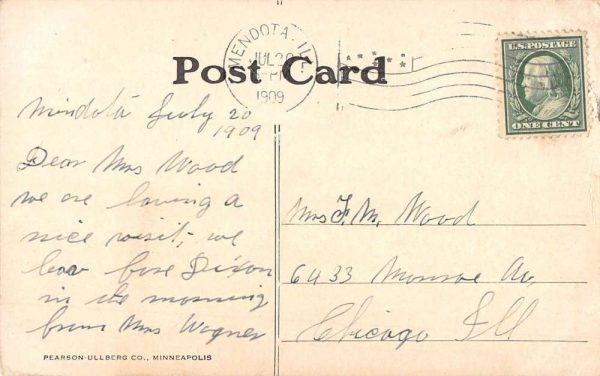 MENDOTA, ILL.
JUL 20
PM
1909
U.S. POSTAGE
ONE CENT
Post Card
Mindota July 20
1909
Dear Mrs Wood
we are having a
nice visit; we
leav fore Dixon
in the morning
from Mrs Wagner
Mrs F. M. Wood
6433 Monroe Av,
Chicago Ill
PEARSON-ULLBERG CO., MINNEAPOLIS